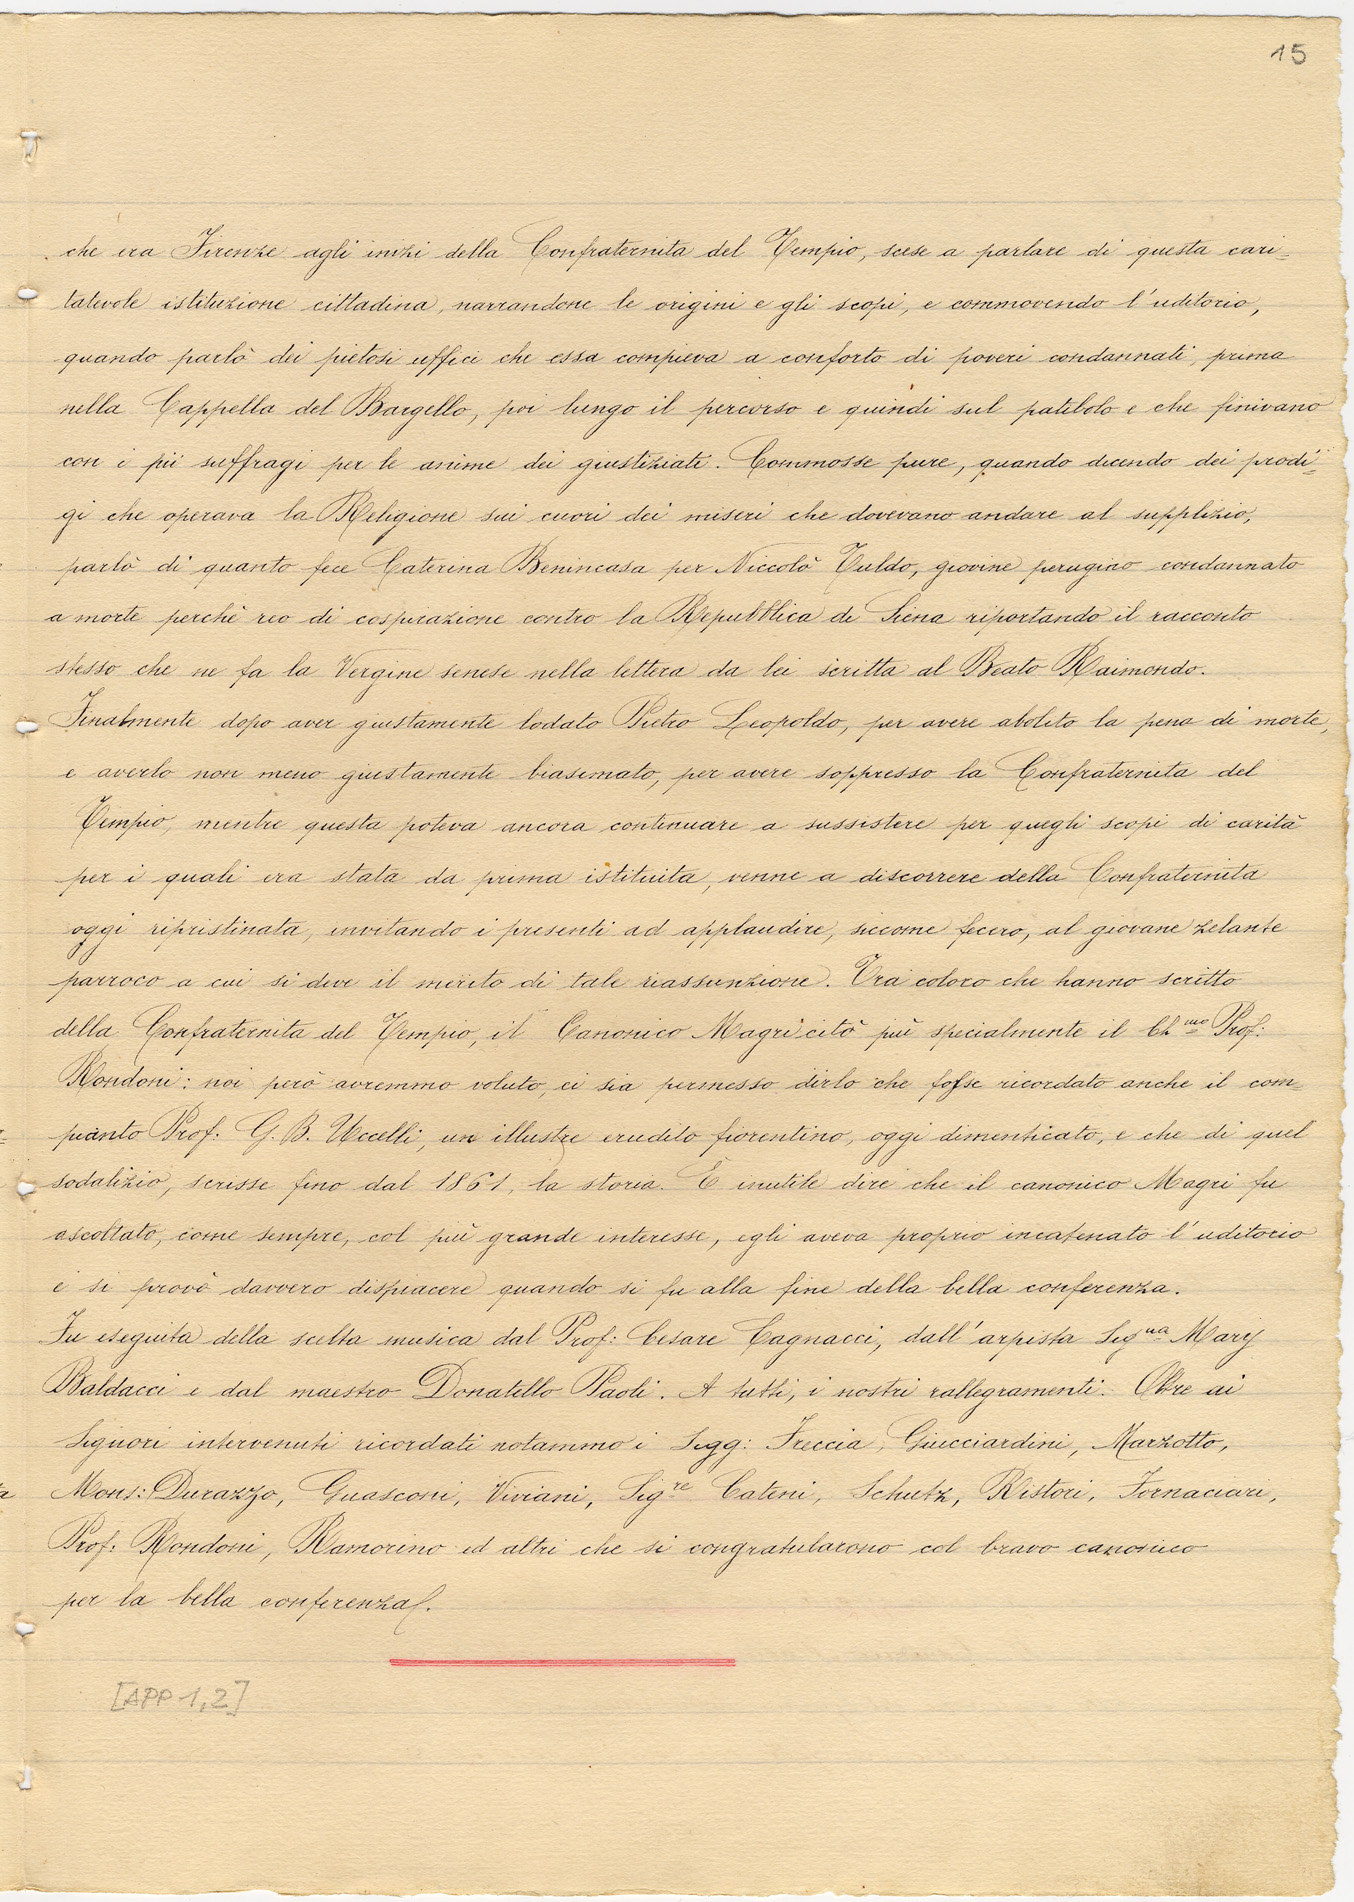 15
che era Firenze agli inizi della Confraternita del Tempio, scese a parlare di questa cari=
tatevole istituzione cittadina, narrandone le origini e gli scopi, e commovendo l'uditorio,
quando parlò dei pietosi uffici che essa compieva a conforto di poveri condannati, prima
nella Cappella del Bargello, poi lungo il percorso e quindi sul patibolo e che finivano
con i pii suffragi per le anime dei giustiziati. Commosse pure, quando dicendo dei prodi=
gi che operava la Religione sui cuori dei miseri che dovevano andare al supplizio,
parlò di quanto fece Caterina Benincasa per Niccolò Tuldo, giovine perugino condannato
a morte perchè reo di cospirazione contro la Repubblica di Siena riportando il racconto
stesso che ne fa la Vergine senese nella lettera da lei scritta al Beato Raimondo.
Finalmente dopo aver giustamente lodato Pietro Leopoldo, per avere abolito la pena di morte,
e averlo non meno giustamente biasimato, per avere soppresso la Confraternita del
Tempio, mentre questa poteva ancora continuare a sussistere per quegli scopi di carità
per i quali era stata da prima istituita, venne a discorrere della Confraternita
oggi ripristinata, invitando i presenti ad applaudire, siccome fecero, al giovane zelante
parroco a cui si deve il merito di tale riassunzione. Tra coloro che hanno scritto
della Confraternita del Tempio, il Canonico Magri citò più specialmente il Ch.mo Prof:
Rondoni: noi però avremmo voluto, ci sia permesso dirlo che fosse ricordato anche il com=
pianto Prof: G. B. Uccelli, un illustre erudito fiorentino, oggi dimenticato, e che di quel
sodalizio, scrisse fino dal 1861, la storia. È inutile dire che il canonico Magri fu
ascoltato, come sempre, col più grande interesse, egli aveva proprio incatenato l'uditorio
e si provò davvero dispiacere quando si fu alla fine della bella conferenza.
Fu eseguita della scelta musica dal Prof: Cesare Cagnacci, dall'arpista Sig.na Mary
Baldacci e dal maestro Donatello Paoli. A tutti, i nostri rallegramenti. Oltre ai
Signori intervenuti ricordati notammo i Sigg: Freccia, Giucciardini, Marzotto,
Mons: Durazzo, Guasconi, Viviani, Sig.re Catini, Schutz, Ristori, Fornaciari,
Prof: Rondoni, Ramorino ed altri che si congratularono col bravo canonico
per la bella conferenza.
[APP 1,2]